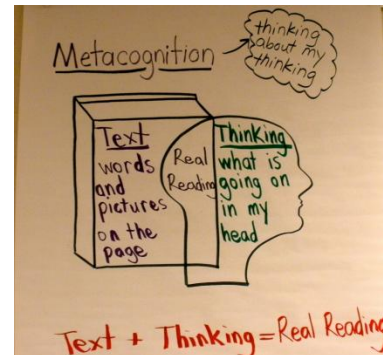 Metacognition
thinking
about my
thinking
Text
words
and
pictures
on the
page
Real
Reading
Thinking
what is
going on
in my
head
Text + Thinking = Real Reading